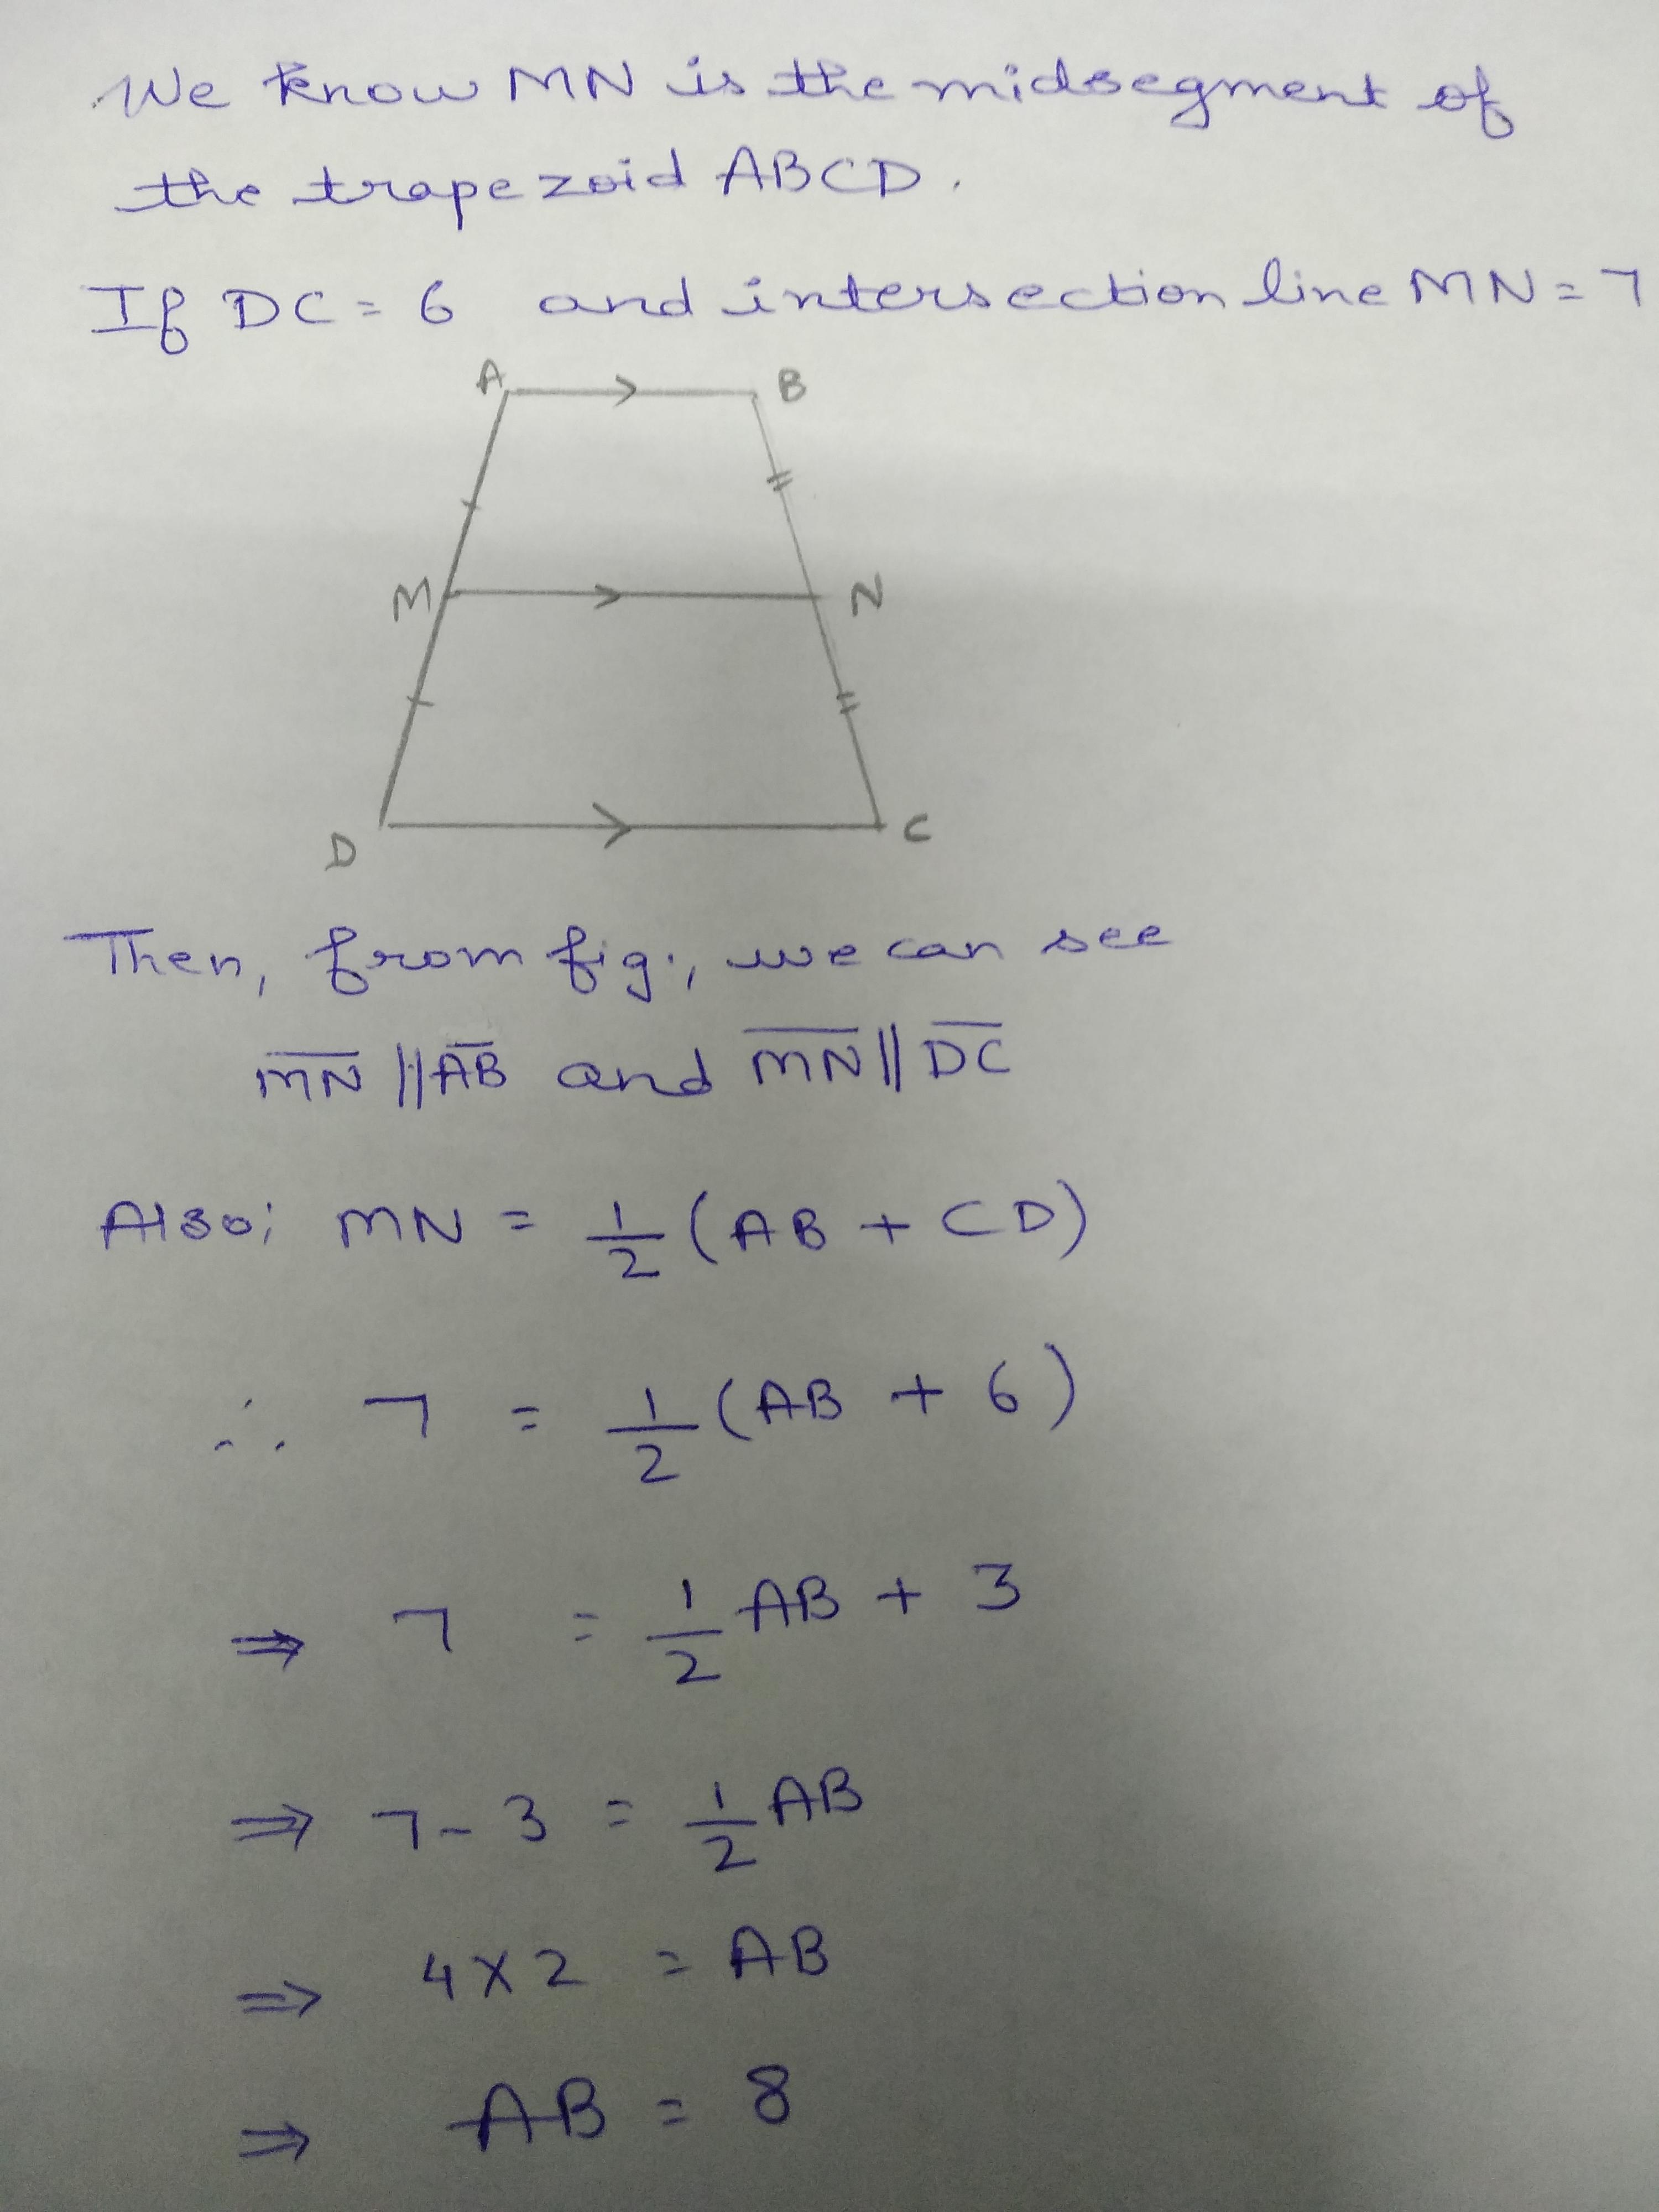 We know MN is the midsegment of
the trapezoid ABCD.
If DC = 6 and intersection line MN = 7
A B
M N
D C
Then, from fig., we can see
M̅N̅ || A̅B̅ and M̅N̅ || D̅C̅
Also; MN = 1/2 (AB + CD)
∴ 7 = 1/2 (AB + 6)
⇒ 7 = 1/2 AB + 3
⇒ 7 - 3 = 1/2 AB
⇒ 4 X 2 = AB
⇒ AB = 8